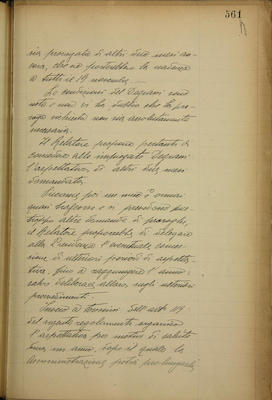 561
sia prorogata di altri dieci mesi an-
cora, che ne porterebbe la scadenza
a tutto il 19 novembre.
Le condizioni del Degrassi sono
note e non vi ha dubbio che la pro-
roga richiesta non sia assolutamente
necessaria.
Il Relatore propone pertanto di
concedere allo impiegato Degrassi
l'aspettativa, di altri dieci mesi
domandata.
Siccome poi un anno è ormai
quasi trascorso e si prevedono
altre domande di proroghe,
il Relatore proporrebbe di delegare
alla Presidenza l'eventuale conces-
sione di ulteriori periodi di aspetta-
tiva, fino a raggiungere l'anno;
salvo deliberare, allora, sugli ulteriori
provvedimenti.
Invero a termini dell'art. 119
del vigente regolamento organico
l'aspettativa per motivi di salute
dura un anno, dopo il quale la
Amministrazione potrà prolungarla